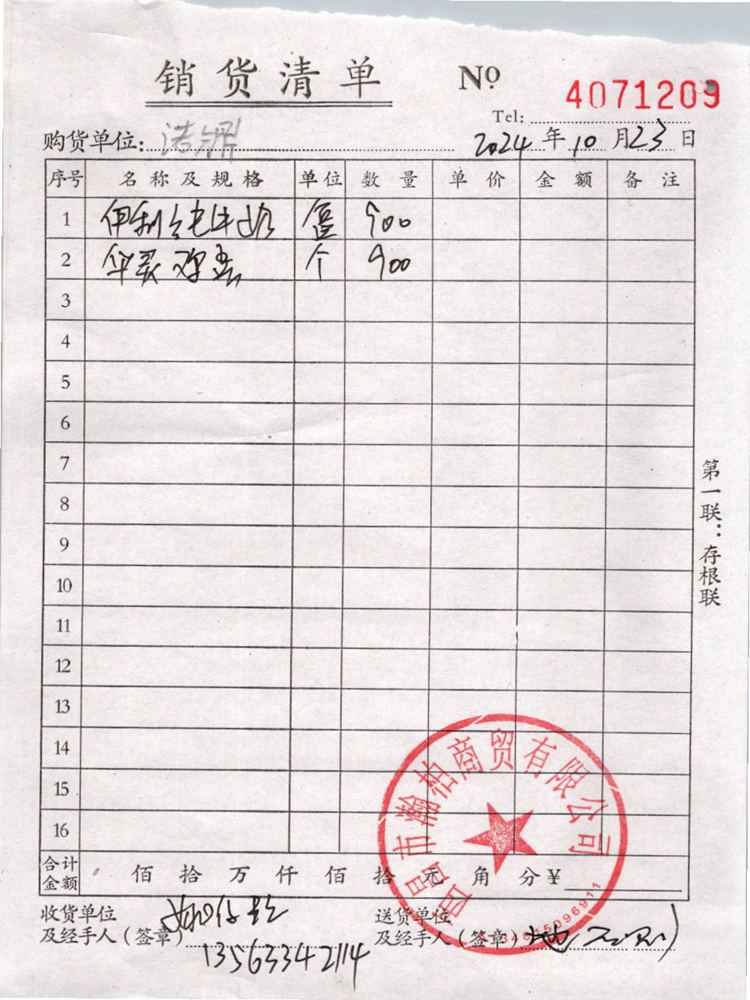 销货清单 Nº 4071209
Tel:
购货单位: 2024年10月23日
序号 名称及规格 单位 数量 单价 金额 备注
1 伊利纯牛奶 900
2 鸡蛋 个 900
3
4
5
6
7
8
9
10
11
12
13
14
15
16
合计金额 佰拾万仟佰拾元角分¥
收货单位
及经手人(签章)
13563342114
送货单位
及经手人(签章)
第一联:存根联
西昌市瀚柏商贸有限公司